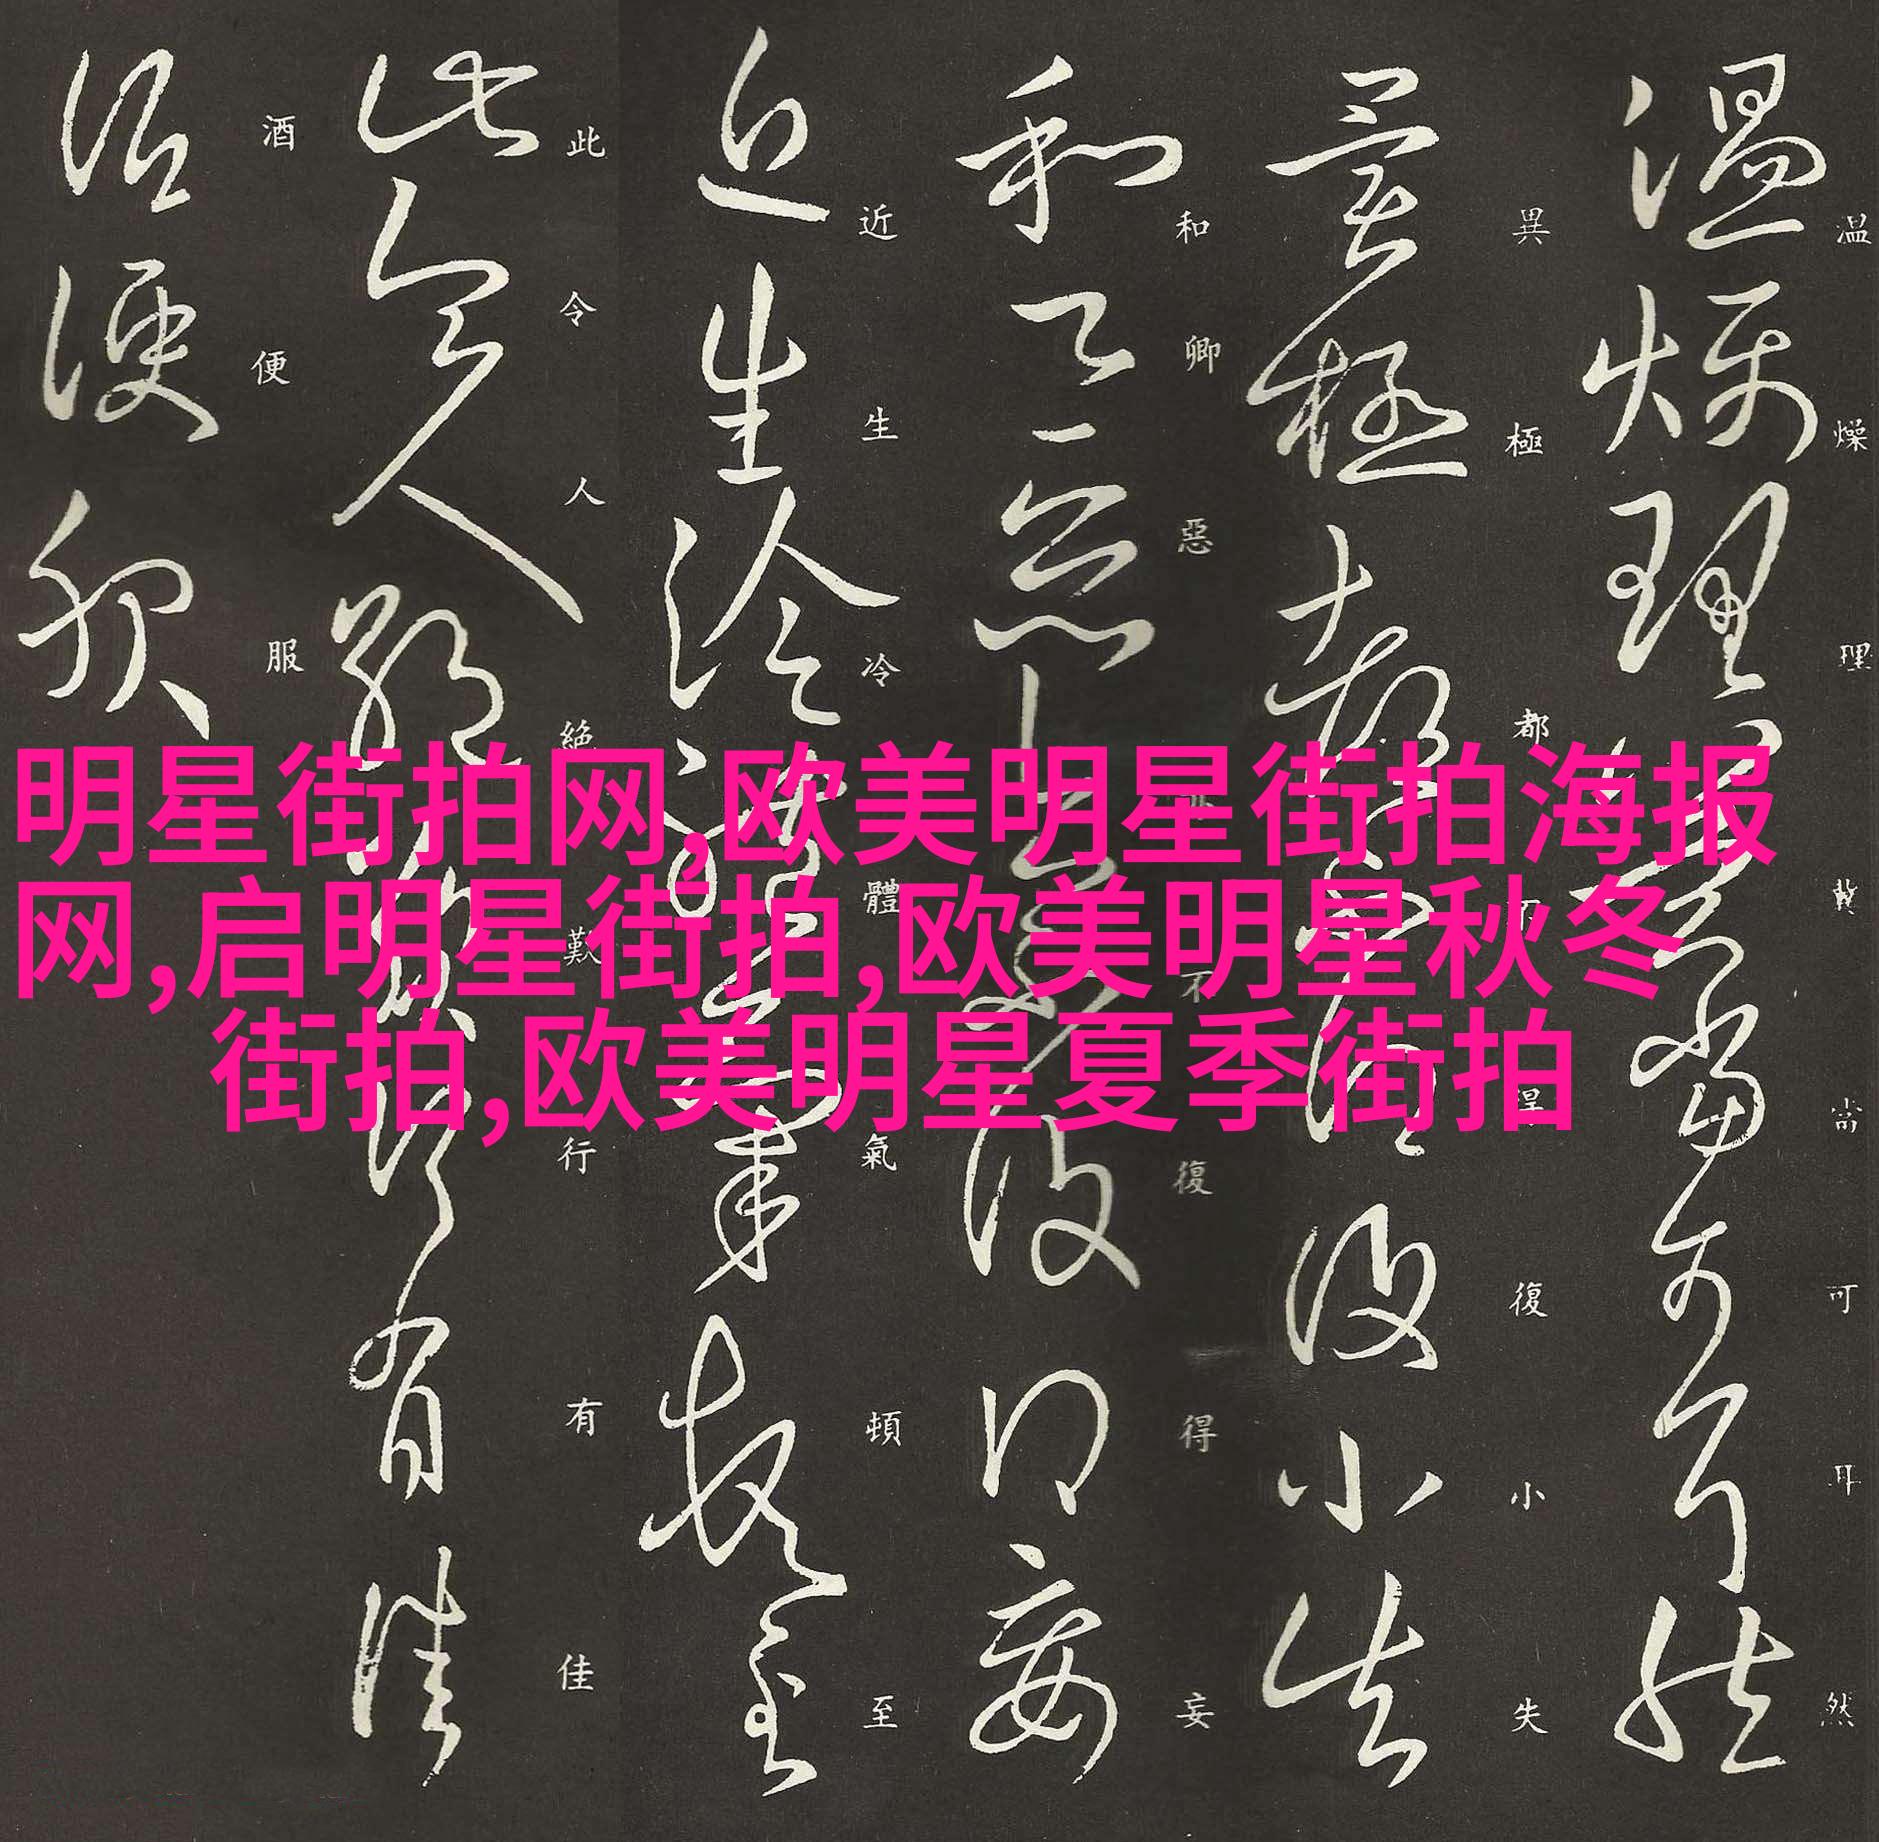 温燥理冀尚可耳然
異極都復小失
和卿惡不復得妄
近生冷體氣頓至
此令人絶歎行有佳
酒便服
明星街拍网,欧美明星街拍海报
网,启明星街拍,欧美明星秋冬
街拍,欧美明星夏季街拍